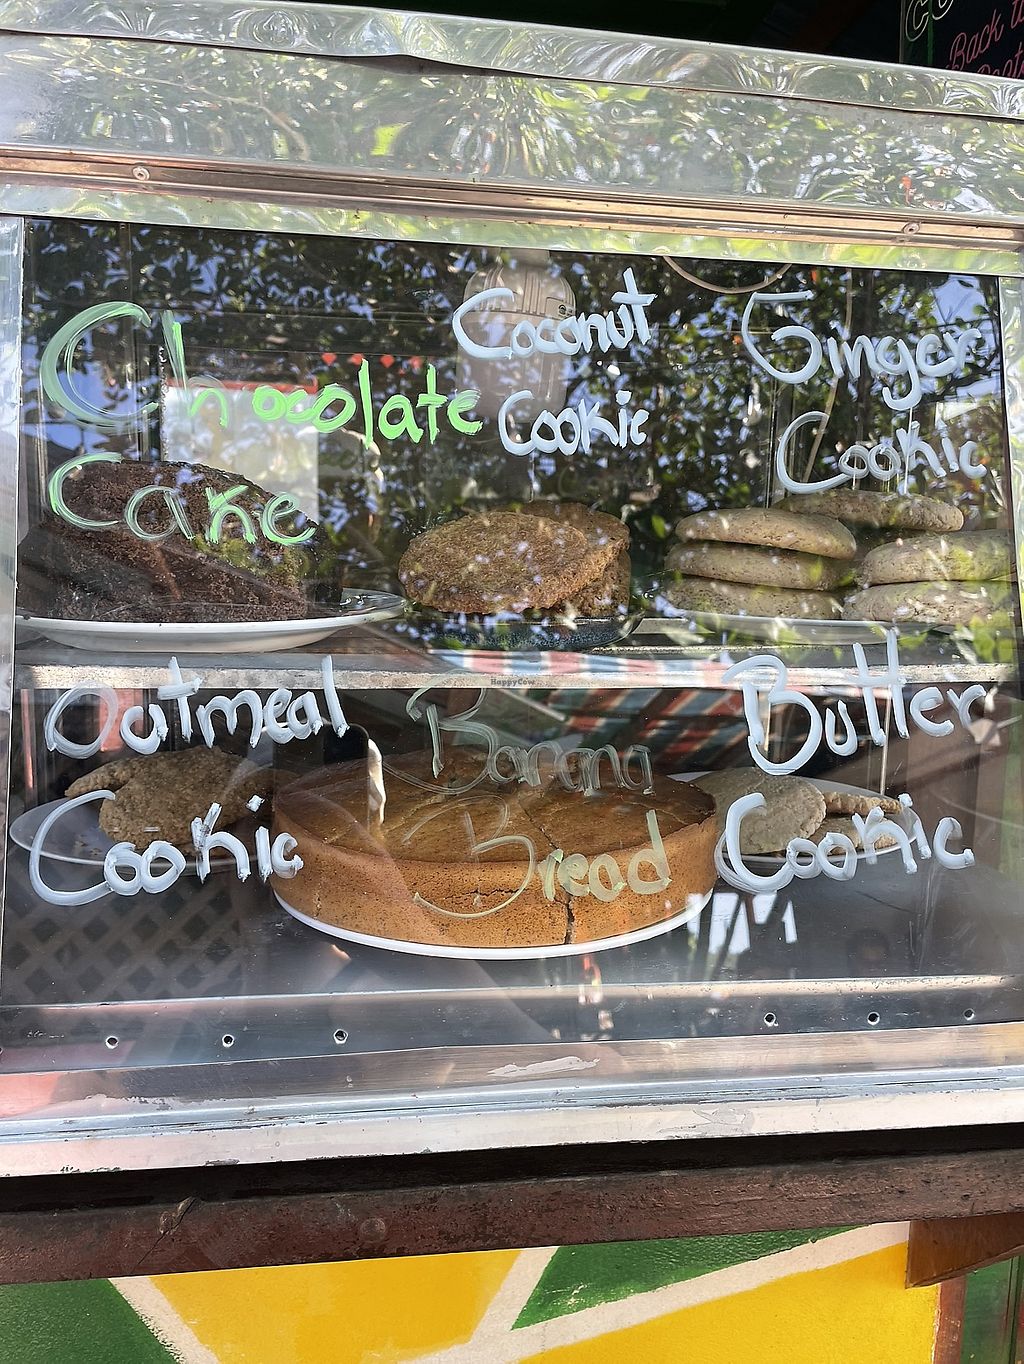 Chocolate
Cake
Coconut
Cookie
Ginger
Cookie
HappyCow
Oatmeal
Cookie
Banana
Bread
Butter
Cookie
Back to